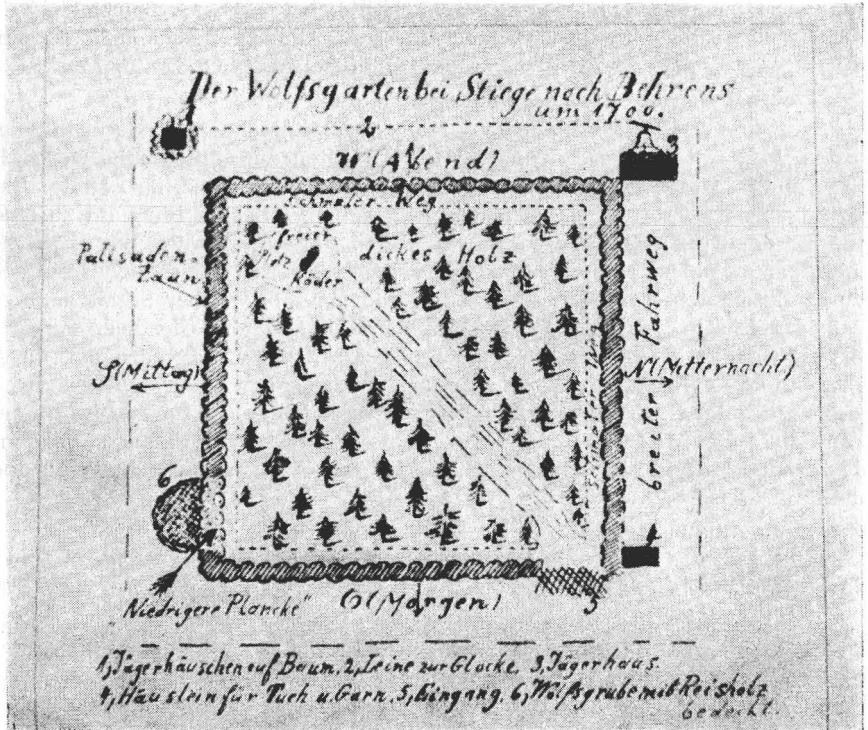 Der Wolfsgarten bei Stiege nach Behrens
um 1700.
2
3
W (Abend)
Schmaler Weg
freier
Platz
Köder
dickes Holz
Palisaden-
zaun
S (Mittag)
N (Mitternacht)
breiter Fahrweg
Schmaler Weg
6
4
5
"Niedrigere Plancke"
O (Morgen)
1, Jägerhäuschen auf Baum, 2, Leine zur Glocke, 3, Jägerhaus.
4, Häuslein für Tuch u. Garn. 5, Eingang. 6, Wolfsgrube mit Reisholz
bedeckt.